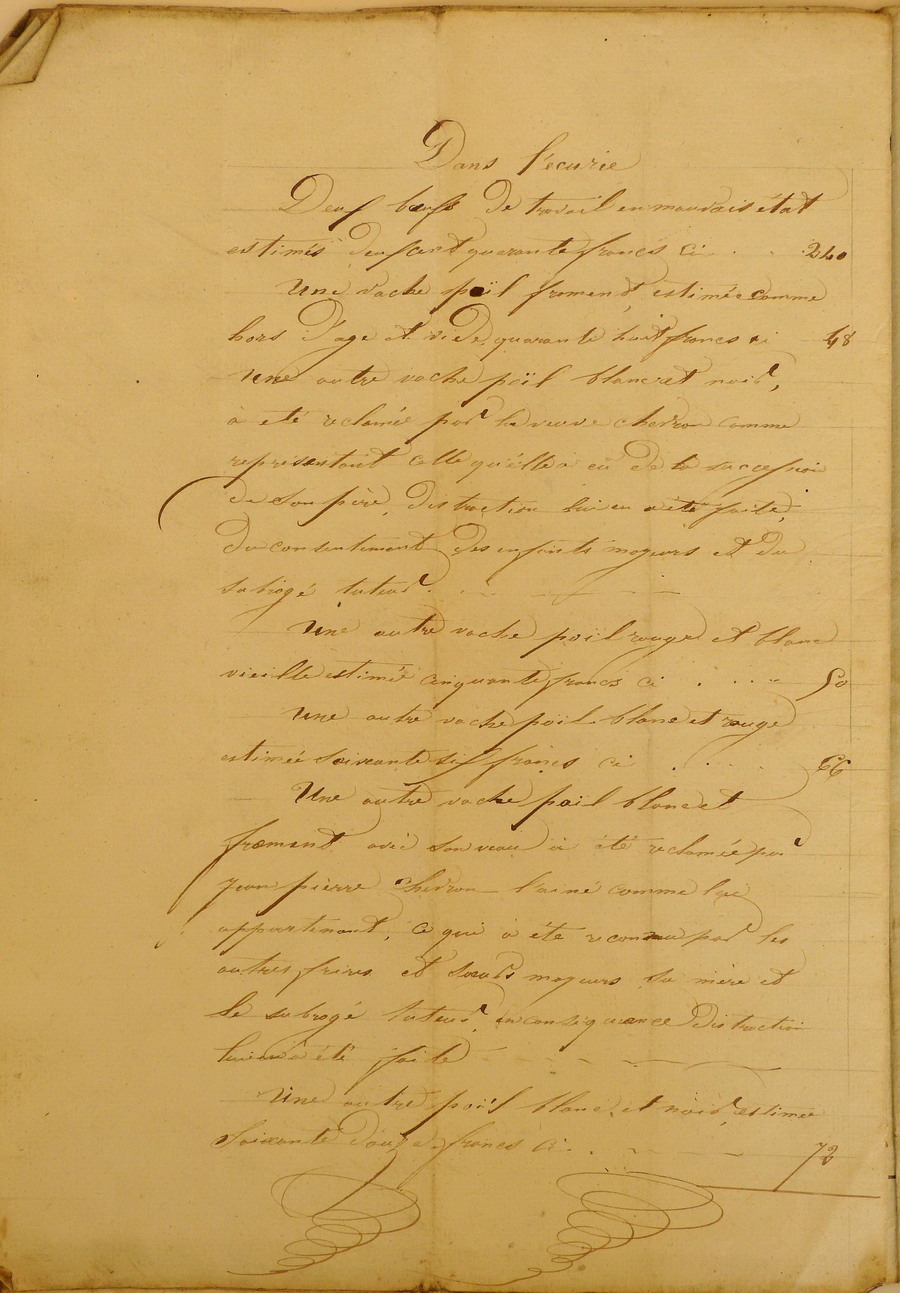 Dans l'écurie
Deux bœufs de travail en mauvais état
estimés deux cent quarante francs ci . . . 240
Une vache poil froment, estimée comme
hors d'age et vide, quarante huit francs ci 48
Une autre vache poil blanc et noir,
à eté réclamée par la veuve chevron comme
représentant celle qu'elle à eu de la succession
de son père, distraction lui en a été faite,
du consentement des enfants mageurs et du
subrogé tuteur.
Une autre vache poil rouge et blanc
vieille estimée cinquante francs ci . . . . 50
Une autre vache poil blanc et rouge
estimée soixante six francs ci . . . . 66
Une autre vache poil blanc et
froment avec son veau à été réclamée par
jean pierre Chevron l'ainé comme lui
appartenant, ce qui à été reconnu par les
autres frères et sœurs mageurs sa mère et
le subrogé tuteur, en conséquence distraction
lui en à été faite
Une autre poil blanc et noir, estimée
soixante douze francs ci . . . 72